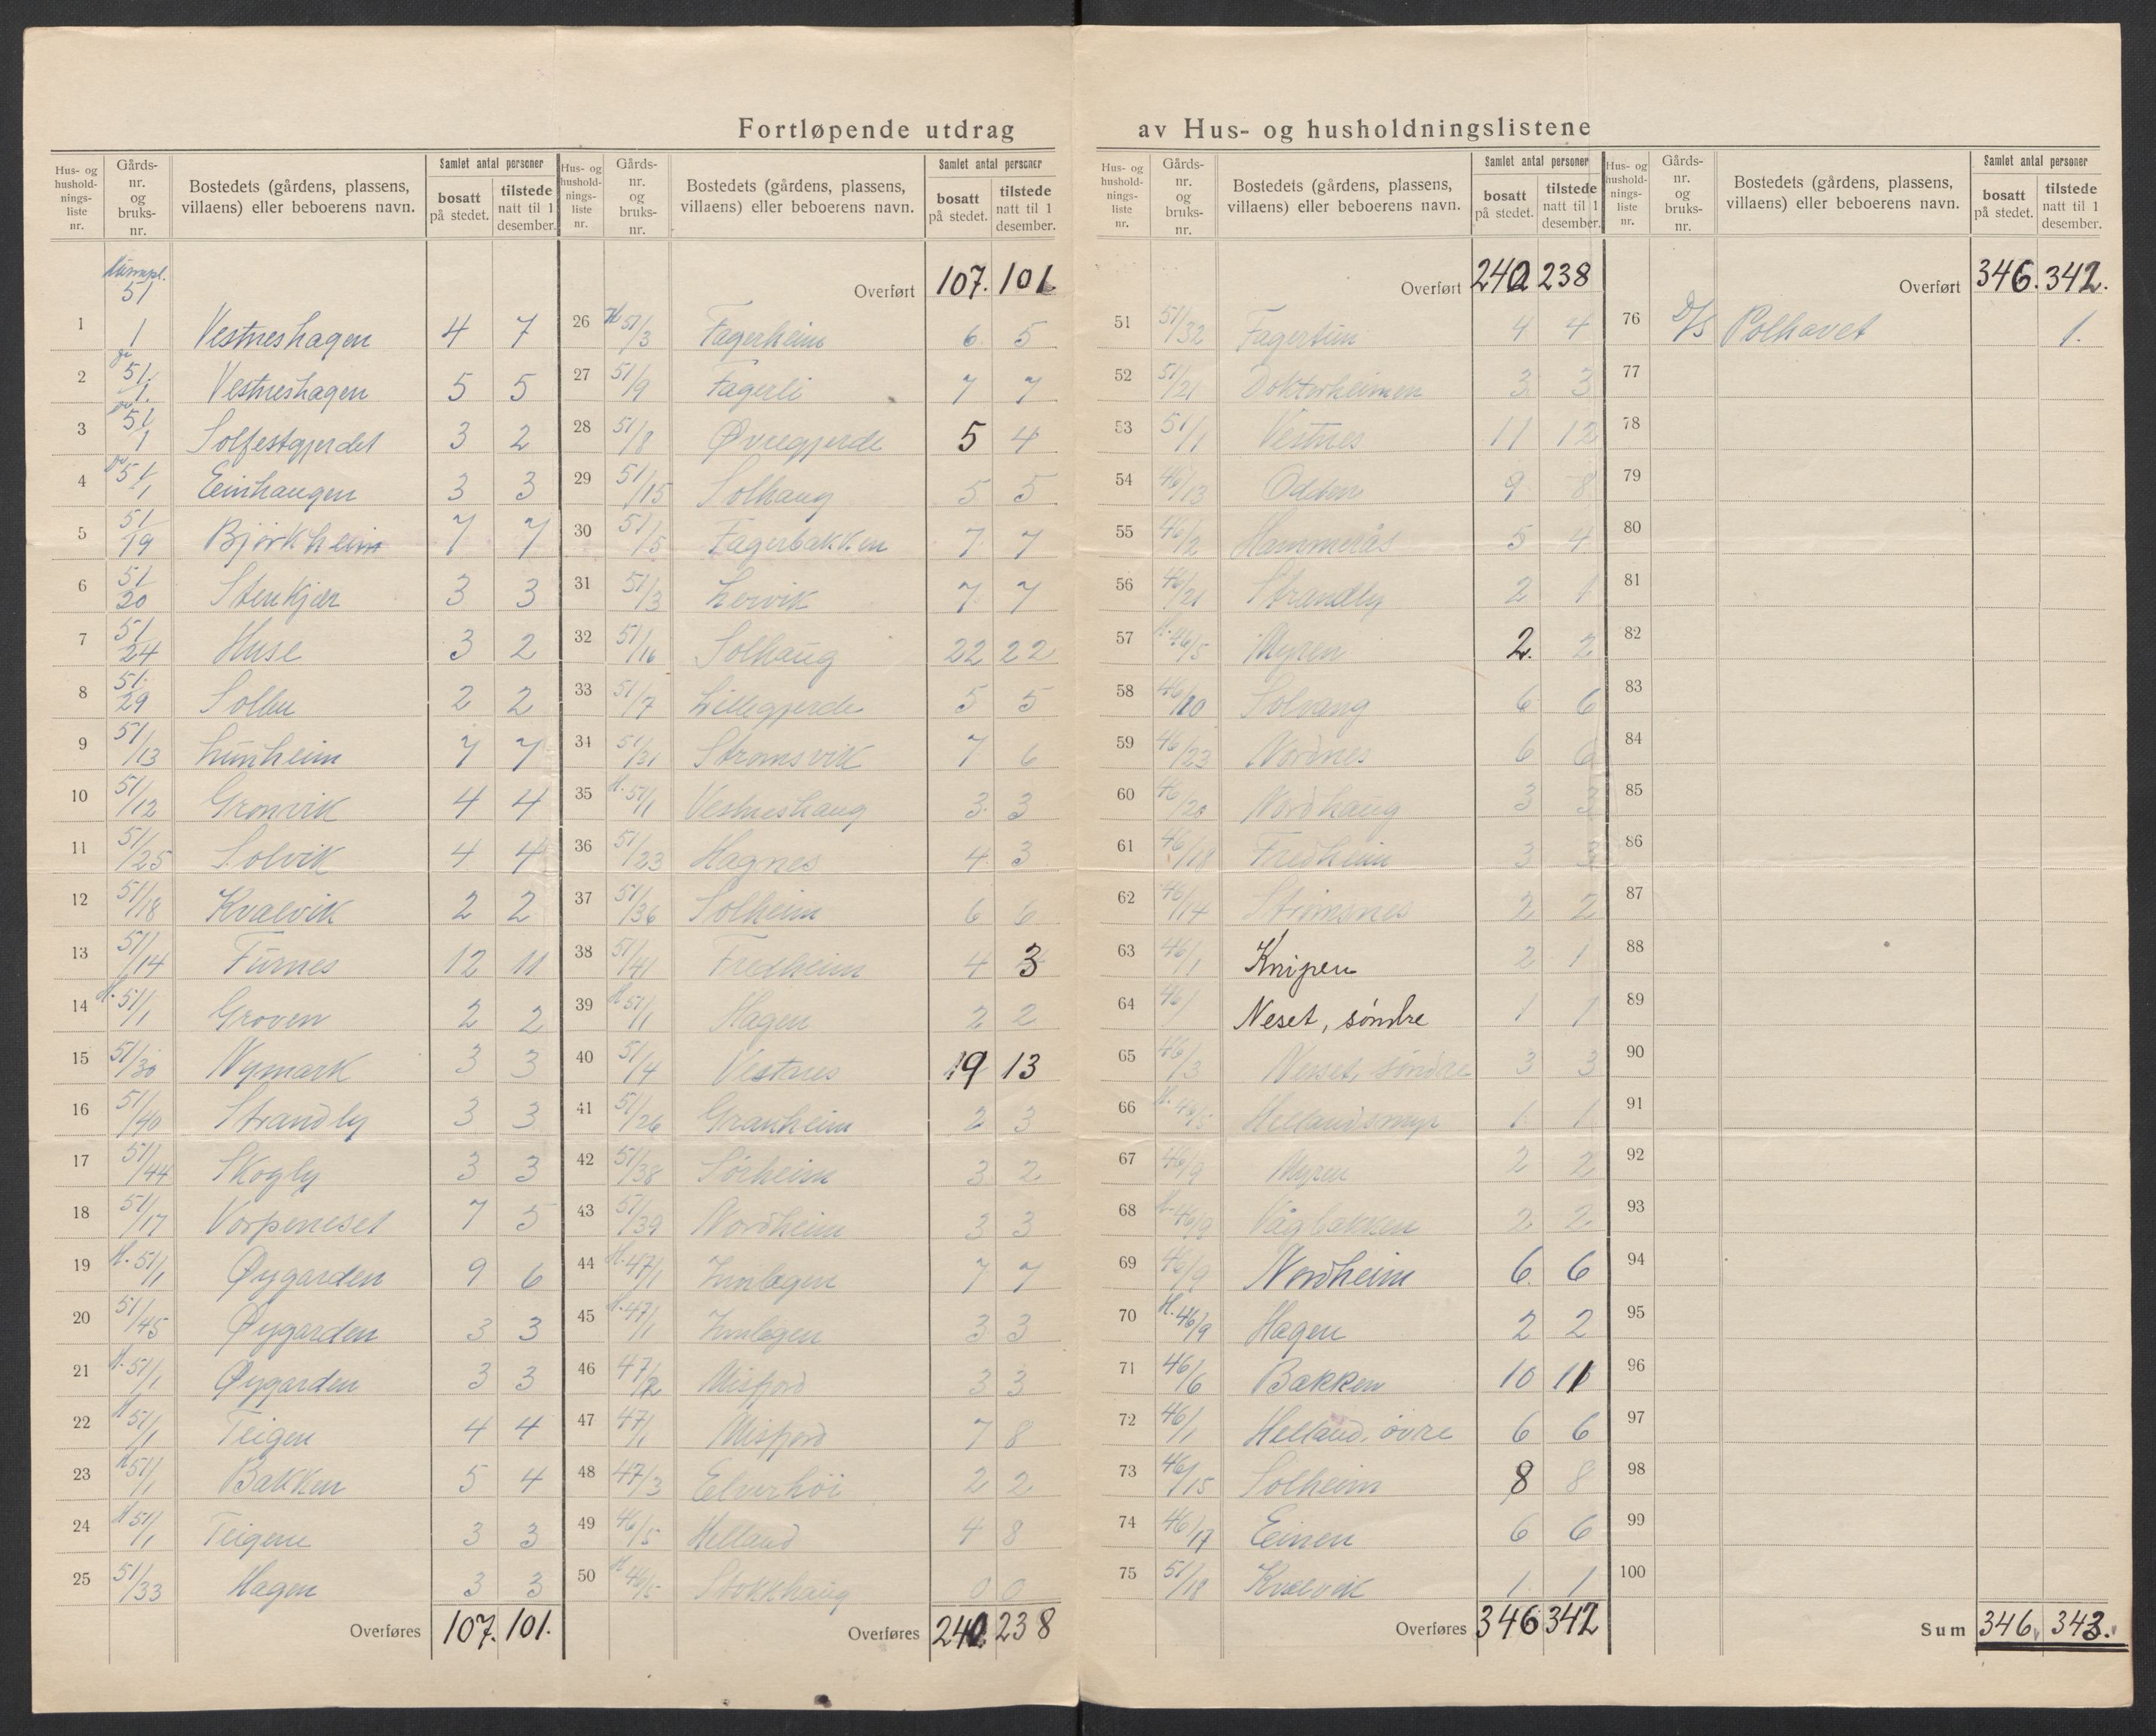 Fortløpende utdrag av Hus- og husholdningslistene
Hus- og husholdnings-liste nr. | Gårds-nr. og bruks-nr. | Bostedets (gårdens, plassens, villaens) eller beboerens navn. | Samlet antal personer | bosatt på stedet. | tilstede natt til 1 desember.
51
1 | 1 | Vestneshagen | 4 | 7
2 | 51/1 | Vestneshagen | 5 | 5
3 | 51/1 | Solfestgjerdet | 3 | 2
4 | 51/1 | Eeinhaugen | 3 | 3
5 | 51/19 | Bjørkheim | 7 | 7
6 | 51/20 | Stenkjær | 3 | 3
7 | 51/24 | Huse | 3 | 2
8 | 51/29 | Solbu | 2 | 2
9 | 51/13 | Lunheim | 7 | 7
10 | 51/12 | Grønvik | 4 | 4
11 | 51/25 | Solvik | 4 | 4
12 | 51/18 | Kvalvik | 2 | 2
13 | 51/14 | Furnes | 12 | 11
14 | H. 51/1 | Groven | 2 | 2
15 | 51/30 | Nymark | 3 | 3
16 | 51/40 | Strandly | 3 | 3
17 | 51/44 | Skogly | 3 | 3
18 | 51/17 | Vorpeneset | 7 | 5
19 | H. 51/1 | Øygarden | 9 | 6
20 | 51/45 | Øygarden | 3 | 3
21 | H. 51/1 | Øygarden | 3 | 3
22 | H 51/1 | Teigen | 4 | 4
23 | H 51/1 | Bakken | 5 | 4
24 | H 51/1 | Teigen | 3 | 3
25 | 51/33 | Hagen | 3 | 3
Overføres | 107. | 101.
Hus- og husholdnings-liste nr. | Gårds-nr. og bruks-nr. | Bostedets (gårdens, plassens, villaens) eller beboerens navn. | Samlet antal personer | bosatt på stedet. | tilstede natt til 1 desember.
Overført | 107. | 101
26 | H 51/3 | Fagerheim | 6 | 5
27 | 51/9 | Fagerli | 7 | 7
28 | 51/8 | Øvregjerde | 5 | 4
29 | 51/15 | Solhaug | 5 | 5
30 | 51/5 | Fagerbakken | 7 | 7
31 | 51/3 | Lervik | 7 | 7
32 | 51/16 | Solhaug | 22 | 22
33 | 51/7 | Lillegjerde | 5 | 5
34 | 51/31 | Strømsvik | 7 | 6
35 | H. 51/1 | Vestneshaug | 3 | 3
36 | 51/23 | Hagnes | 4 | 3
37 | 51/36 | Solheim | 6 | 6
38 | 51/41 | Fredheim | 4 | 3
39 | H 51/1 | Hagen | 2 | 2
40 | 51/4 | Vestnes | 19 | 13
41 | 51/26 | Granheim | 2 | 3
42 | 51/38 | Sørheim | 3 | 2
43 | 51/39 | Nordheim | 3 | 3
44 | H. 47/1 | Innlegen | 7 | 7
45 | H. 47/1 | Innlegen | 3 | 3
46 | 47/2 | Misfjord | 3 | 3
47 | 47/1 | Misfjord | 7 | 8
48 | 47/3 | Elverhöi | 2 | 2
49 | 46/5 | Helland | 4 | 8
50 | H 46/5 | Stokkhaug | 0 | 0
Overføres | 240 | 238
Hus- og husholdnings-liste nr. | Gårds-nr. og bruks-nr. | Bostedets (gårdens, plassens, villaens) eller beboerens navn. | Samlet antal personer | bosatt på stedet. | tilstede natt til 1 desember.
Overført | 240 | 238
51 | 51/32 | Fagertun | 4 | 4
52 | 51/21 | Doktorheimen | 3 | 3
53 | 51/1 | Vestnes | 11 | 12
54 | 46/13 | 9 | 8
55 | 46/2 | Hammerås | 5 | 4
56 | 46/21 | Strandly | 2 | 1
57 | H. 46/5 | Myren | 2. | 2
58 | 46/10 | Solvang | 6 | 6
59 | 46/23 | Nordnes | 6 | 6
60 | 46/20 | Nordhaug | 3 | 3
61 | 46/18 | Fredheim | 3 | 3
62 | 46/14 | Strømsnes | 2 | 2
63 | 46/1 | Knipen | 2 | 1
64 | 46/ | Neset, søndre | 1 | 1
65 | 46/3 | Nesset, søndre | 3 | 3
66 | H. 46/5 | Hellandsmyr | 1 | 1
67 | 46/9 | Myren | 2 | 2
68 | H. 46/9 | Vågbakken | 2 | 2
69 | 46/9 | Nordheim | 6. | 6
70 | H. 46/9 | Hagen | 2 | 2
71 | 46/6 | Bakken | 10 | 11
72 | 46/1 | Helland, øvre | 6 | 6
73 | 46/15 | Solheim | 8 | 8
74 | 46/17 | Einen | 6 | 6
75 | 51/18 | Kvalvik | 1 | 1
Overføres | 346 | 342
Hus- og husholdnings-liste nr. | Gårds-nr. og bruks-nr. | Bostedets (gårdens, plassens, villaens) eller beboerens navn. | Samlet antal personer | bosatt på stedet. | tilstede natt til 1 desember.
Overført | 346. | 342.
76 | D/S | Polhavet | 1.
77
78
79
80
81
82
83
84
85
86
87
88
89
90
91
92
93
94
95
96
97
98
99
100
Sum | 346. | 343.